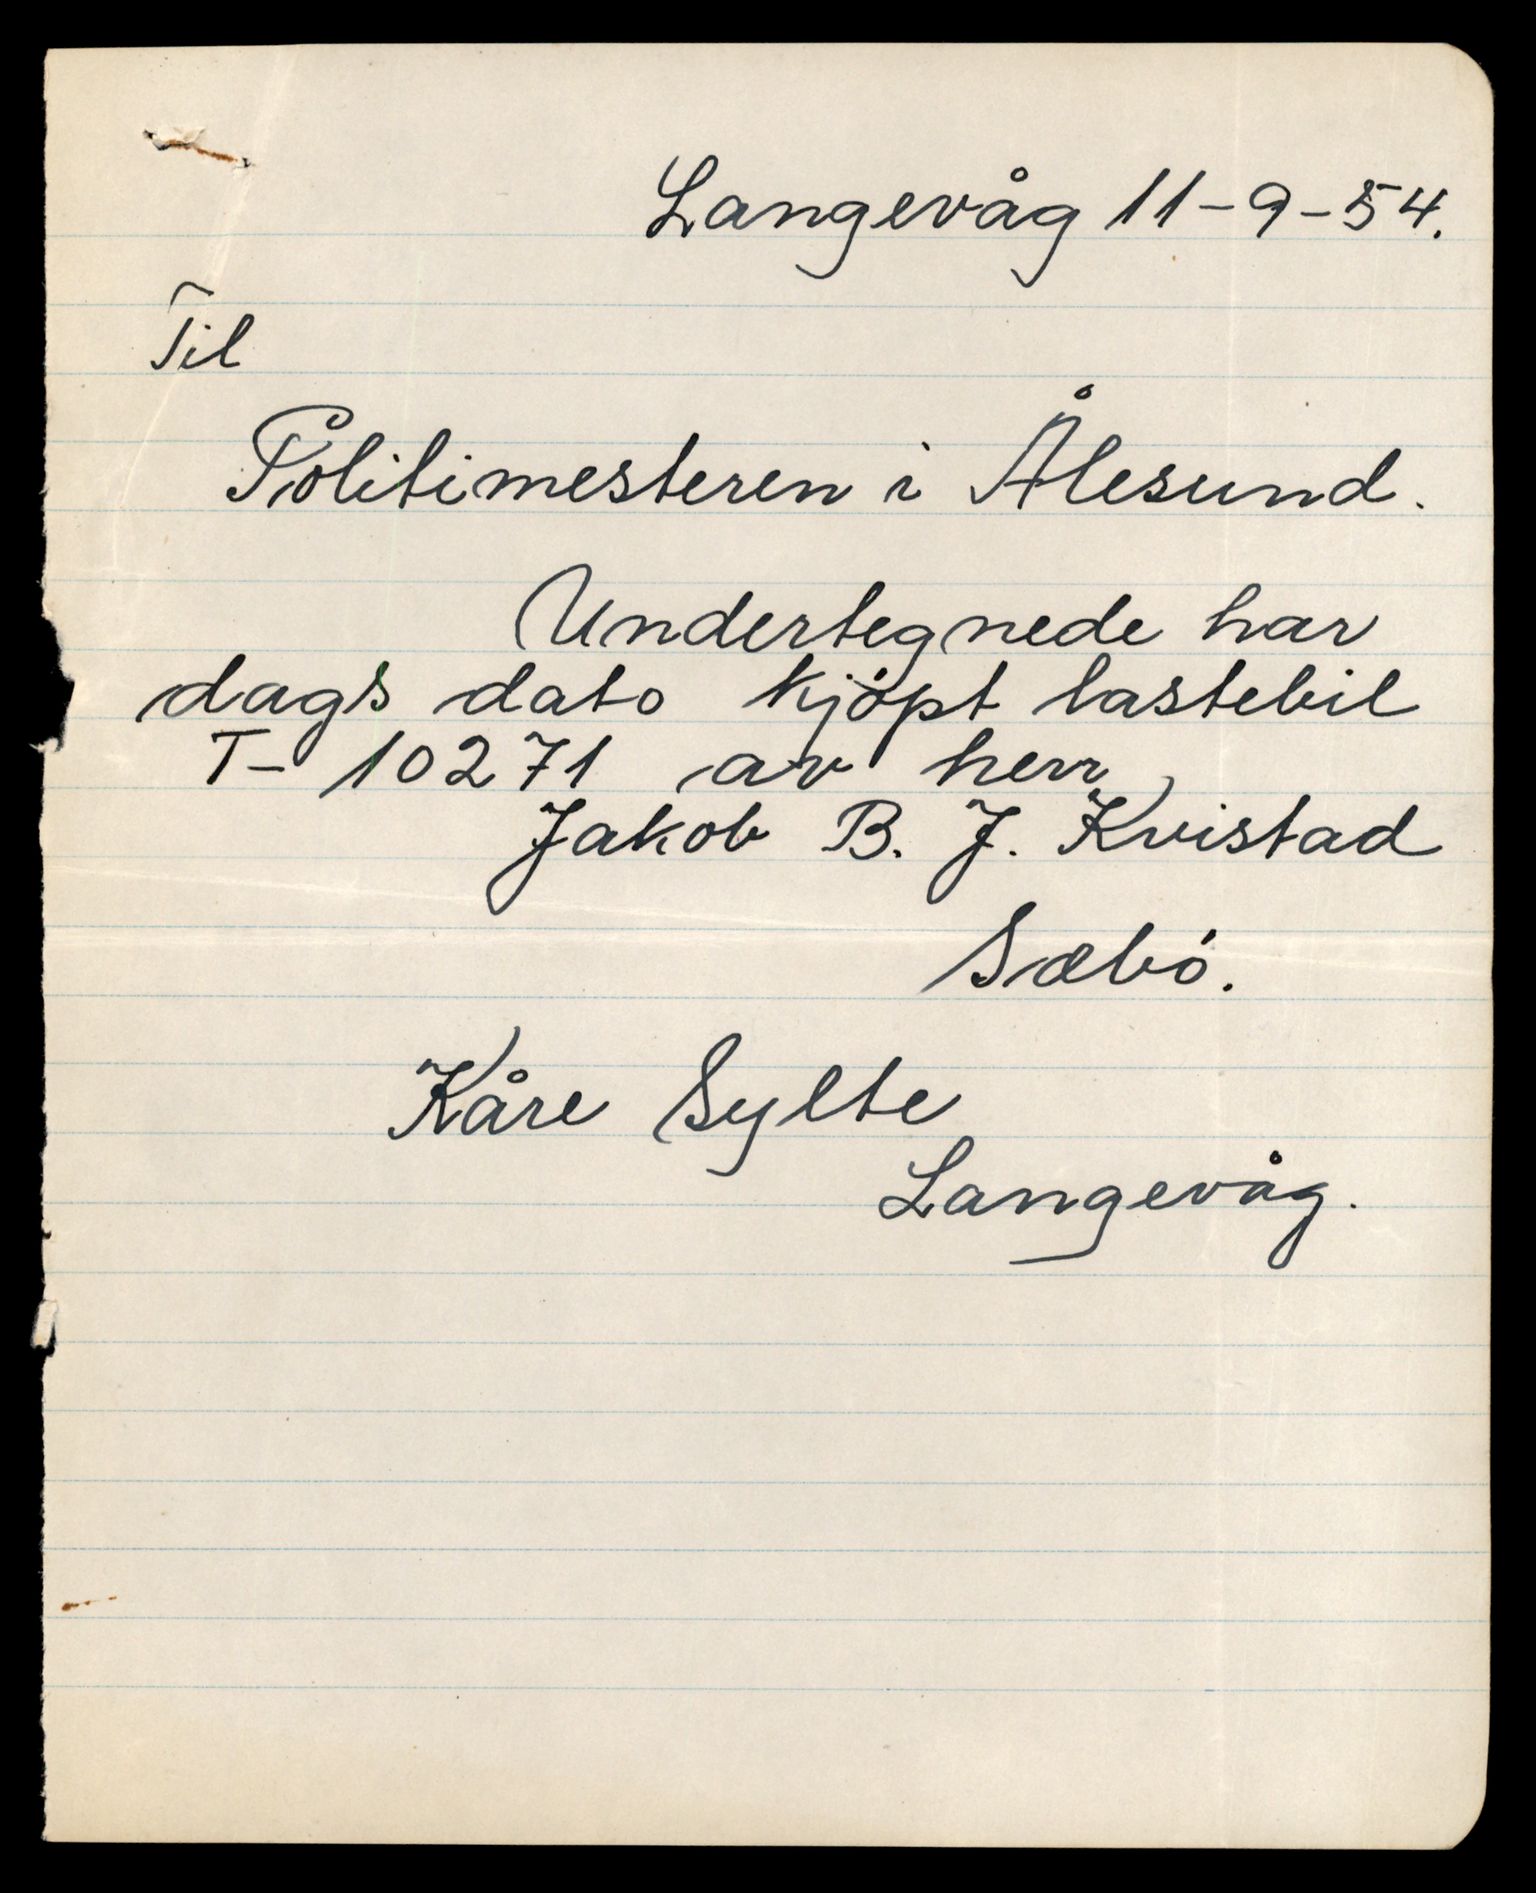 Langevåg 11-9-54.
Til
Politimesteren i Ålesund.
Undertegnede har
dags dato kjöpt lastebil
T- 10271 av herr
Jakob B. J. Kvistad
Sæbö.
Kåre Sylte
Langevåg.